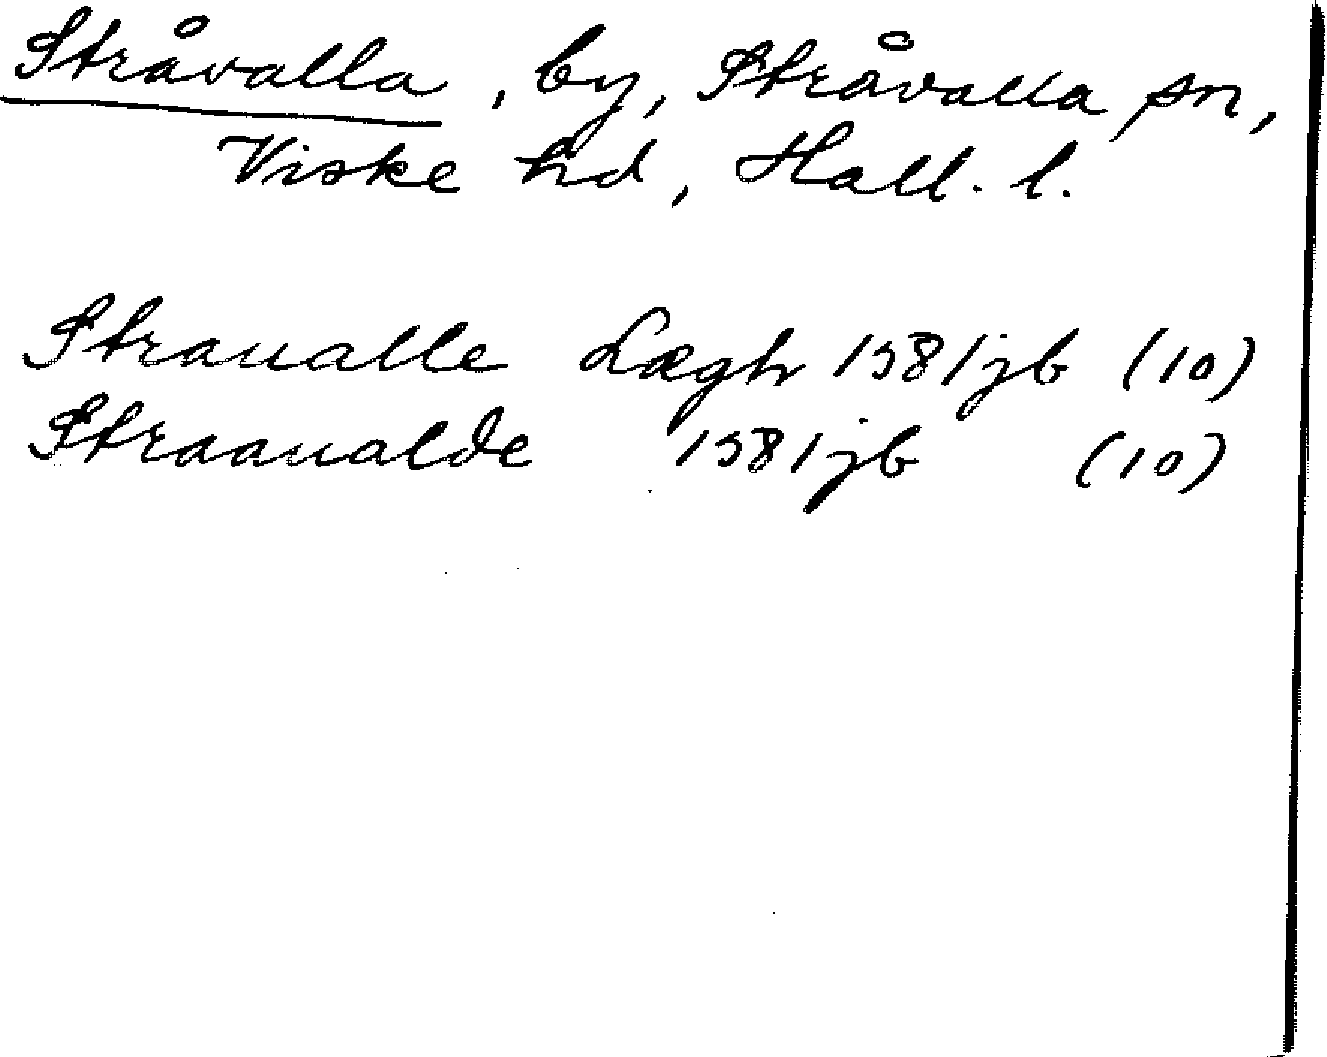 Stråvalla, by, Stråvalla sn,
Viske hd, Hall. l.
Straualle Lægh 1581 jb (10)
Straaualde 1581 jb (10)